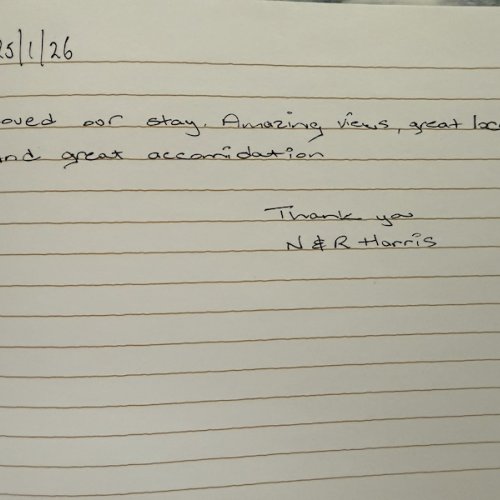 25/1/26
oved our stay. Amazing views, great loc
and great accomidation
Thank you
N & R Harris